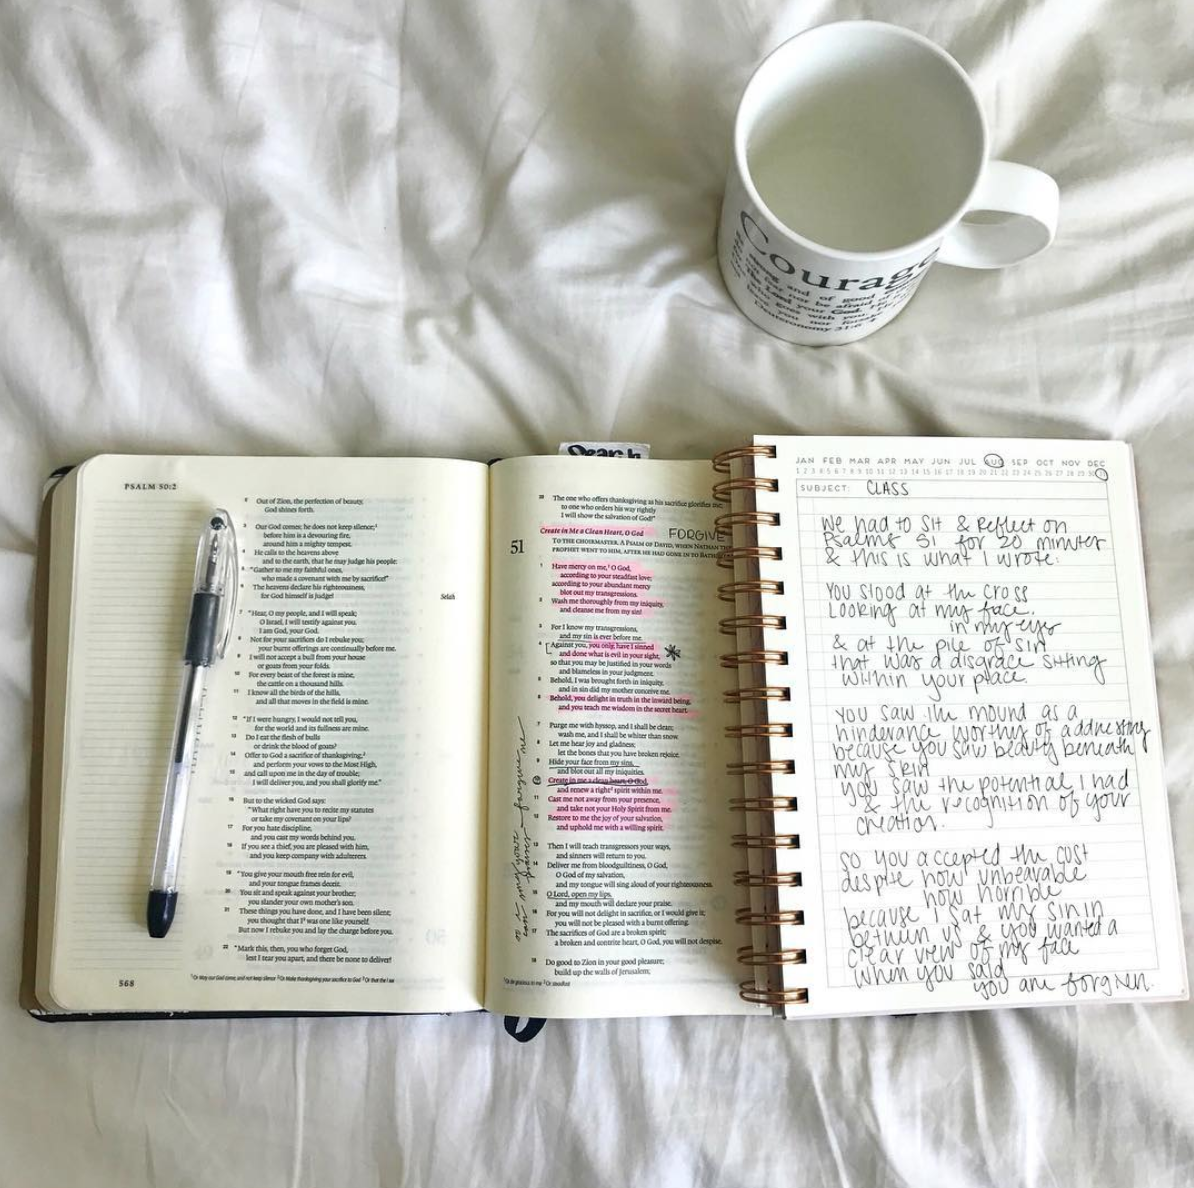 Courage
strong and of good
not be afraid
The Lord your God
who goes with you
you nor
Deuteronomy 31:6
PSALM 50:2
2 Out of Zion, the perfection of beauty,
God shines forth.
3 Our God comes; he does not keep silence;¹
before him is a devouring fire,
around him a mighty tempest.
4 He calls to the heavens above
and to the earth, that he may judge his people:
5 "Gather to me my faithful ones,
who made a covenant with me by sacrifice!"
6 The heavens declare his righteousness,
for God himself is judge! Selah
7 "Hear, O my people, and I will speak;
O Israel, I will testify against you.
I am God, your God.
8 Not for your sacrifices do I rebuke you;
your burnt offerings are continually before me.
9 I will not accept a bull from your house
or goats from your folds.
10 For every beast of the forest is mine,
the cattle on a thousand hills.
11 I know all the birds of the hills,
and all that moves in the field is mine.
12 "If I were hungry, I would not tell you,
for the world and its fullness are mine.
13 Do I eat the flesh of bulls
or drink the blood of goats?
14 Offer to God a sacrifice of thanksgiving,²
and perform your vows to the Most High,
15 and call upon me in the day of trouble;
I will deliver you, and you shall glorify me."
16 But to the wicked God says:
"What right have you to recite my statutes
or take my covenant on your lips?
17 For you hate discipline,
and you cast my words behind you.
18 If you see a thief, you are pleased with him,
and you keep company with adulterers.
19 "You give your mouth free rein for evil,
and your tongue frames deceit.
20 You sit and speak against your brother;
you slander your own mother's son.
21 These things you have done, and I have been silent;
you thought that I³ was one like yourself.
But now I rebuke you and lay the charge before you.
22 "Mark this, then, you who forget God,
lest I tear you apart, and there be none to deliver!
568
¹ Or May our God come, and not keep silence ² Or Make thanksgiving your sacrifice to God ³ Or that the I am
23 The one who offers thanksgiving as his sacrifice glorifies me;
to one who orders his way rightly
I will show the salvation of God!"
Create in Me a Clean Heart, O God
FORGIVE
51 TO THE CHOIRMASTER. A PSALM OF DAVID, WHEN NATHAN THE
PROPHET WENT TO HIM, AFTER HE HAD GONE IN TO
1 Have mercy on me,¹ O God,
according to your steadfast love;
according to your abundant mercy
blot out my transgressions.
2 Wash me thoroughly from my iniquity,
and cleanse me from my sin!
3 For I know my transgressions,
and my sin is ever before me.
4 Against you, you only, have I sinned
and done what is evil in your sight,
so that you may be justified in your words
and blameless in your judgment.
5 Behold, I was brought forth in iniquity,
and in sin did my mother conceive me.
6 Behold, you delight in truth in the inward being,
and you teach me wisdom in the secret heart.
7 Purge me with hyssop, and I shall be clean;
wash me, and I shall be whiter than snow.
8 Let me hear joy and gladness;
let the bones that you have broken rejoice.
9 Hide your face from my sins,
and blot out all my iniquities.
10 Create in me a clean heart, O God,
and renew a right² spirit within me.
11 Cast me not away from your presence,
and take not your Holy Spirit from me.
12 Restore to me the joy of your salvation,
and uphold me with a willing spirit.
13 Then I will teach transgressors your ways,
and sinners will return to you.
14 Deliver me from bloodguiltiness, O God,
O God of my salvation,
and my tongue will sing aloud of your righteousness.
15 O Lord, open my lips,
and my mouth will declare your praise.
16 For you will not delight in sacrifice, or I would give it;
you will not be pleased with a burnt offering.
17 The sacrifices of God are a broken spirit;
a broken and contrite heart, O God, you will not despise.
18 Do good to Zion in your good pleasure;
build up the walls of Jerusalem;
¹ Or Be gracious to me ² Or steadfast
JAN FEB MAR APR MAY JUN JUL AUG SEP OCT NOV DEC
1 2 3 4 5 6 7 8 9 10 11 12 13 14 15 16 17 18 19 20 21 22 23 24 25 26 27 28 29 30 31
SUBJECT: CLASS
We had to sit & reflect on
Psalms 51 for 20 minutes
& this is what I wrote:
You stood at the cross
Looking at my face.
in my eyes
& at the pile of sin
that was a disgrace sitting
within your place.
You saw the mound as a
hinderance worthy of addressing
because you saw beauty beneath
my skin
you saw the potential I had
& the recognition of your
creation.
So you accepted the cost
despite how unbearable
how horrible
because I sat my sin in
between us & you wanted a
clear view of my face
when you said
you are forgiven.